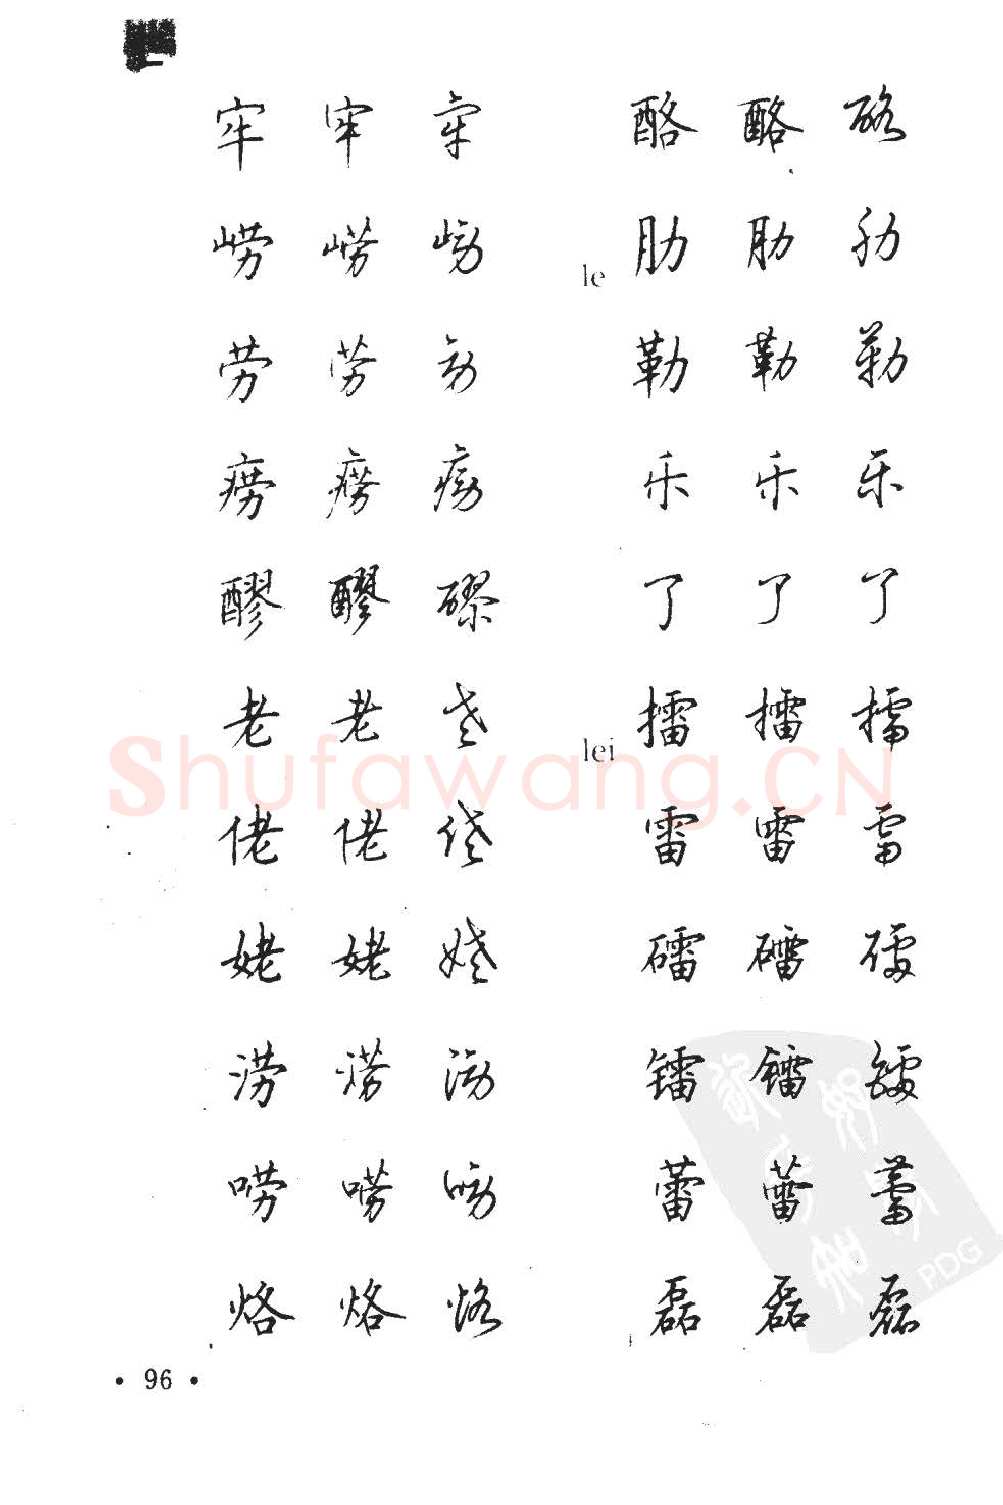 牢 牢 牢
崂 崂 崂
劳 劳 劳
痨 痨 痨
醪 醪 醪
老 老 老
佬 佬 佬
姥 姥 姥
涝 涝 涝
唠 唠 唠
烙 烙 烙
酪 酪 酪
le 肋 肋 肋
勒 勒 勒
乐 乐 乐
了 了 了
lei 擂 擂 擂
雷 雷 雷
礌 礌 礌
镭 镭 镭
蕾 蕾 蕾
磊 磊 磊
· 96 ·
Shufawang.CN
PDG